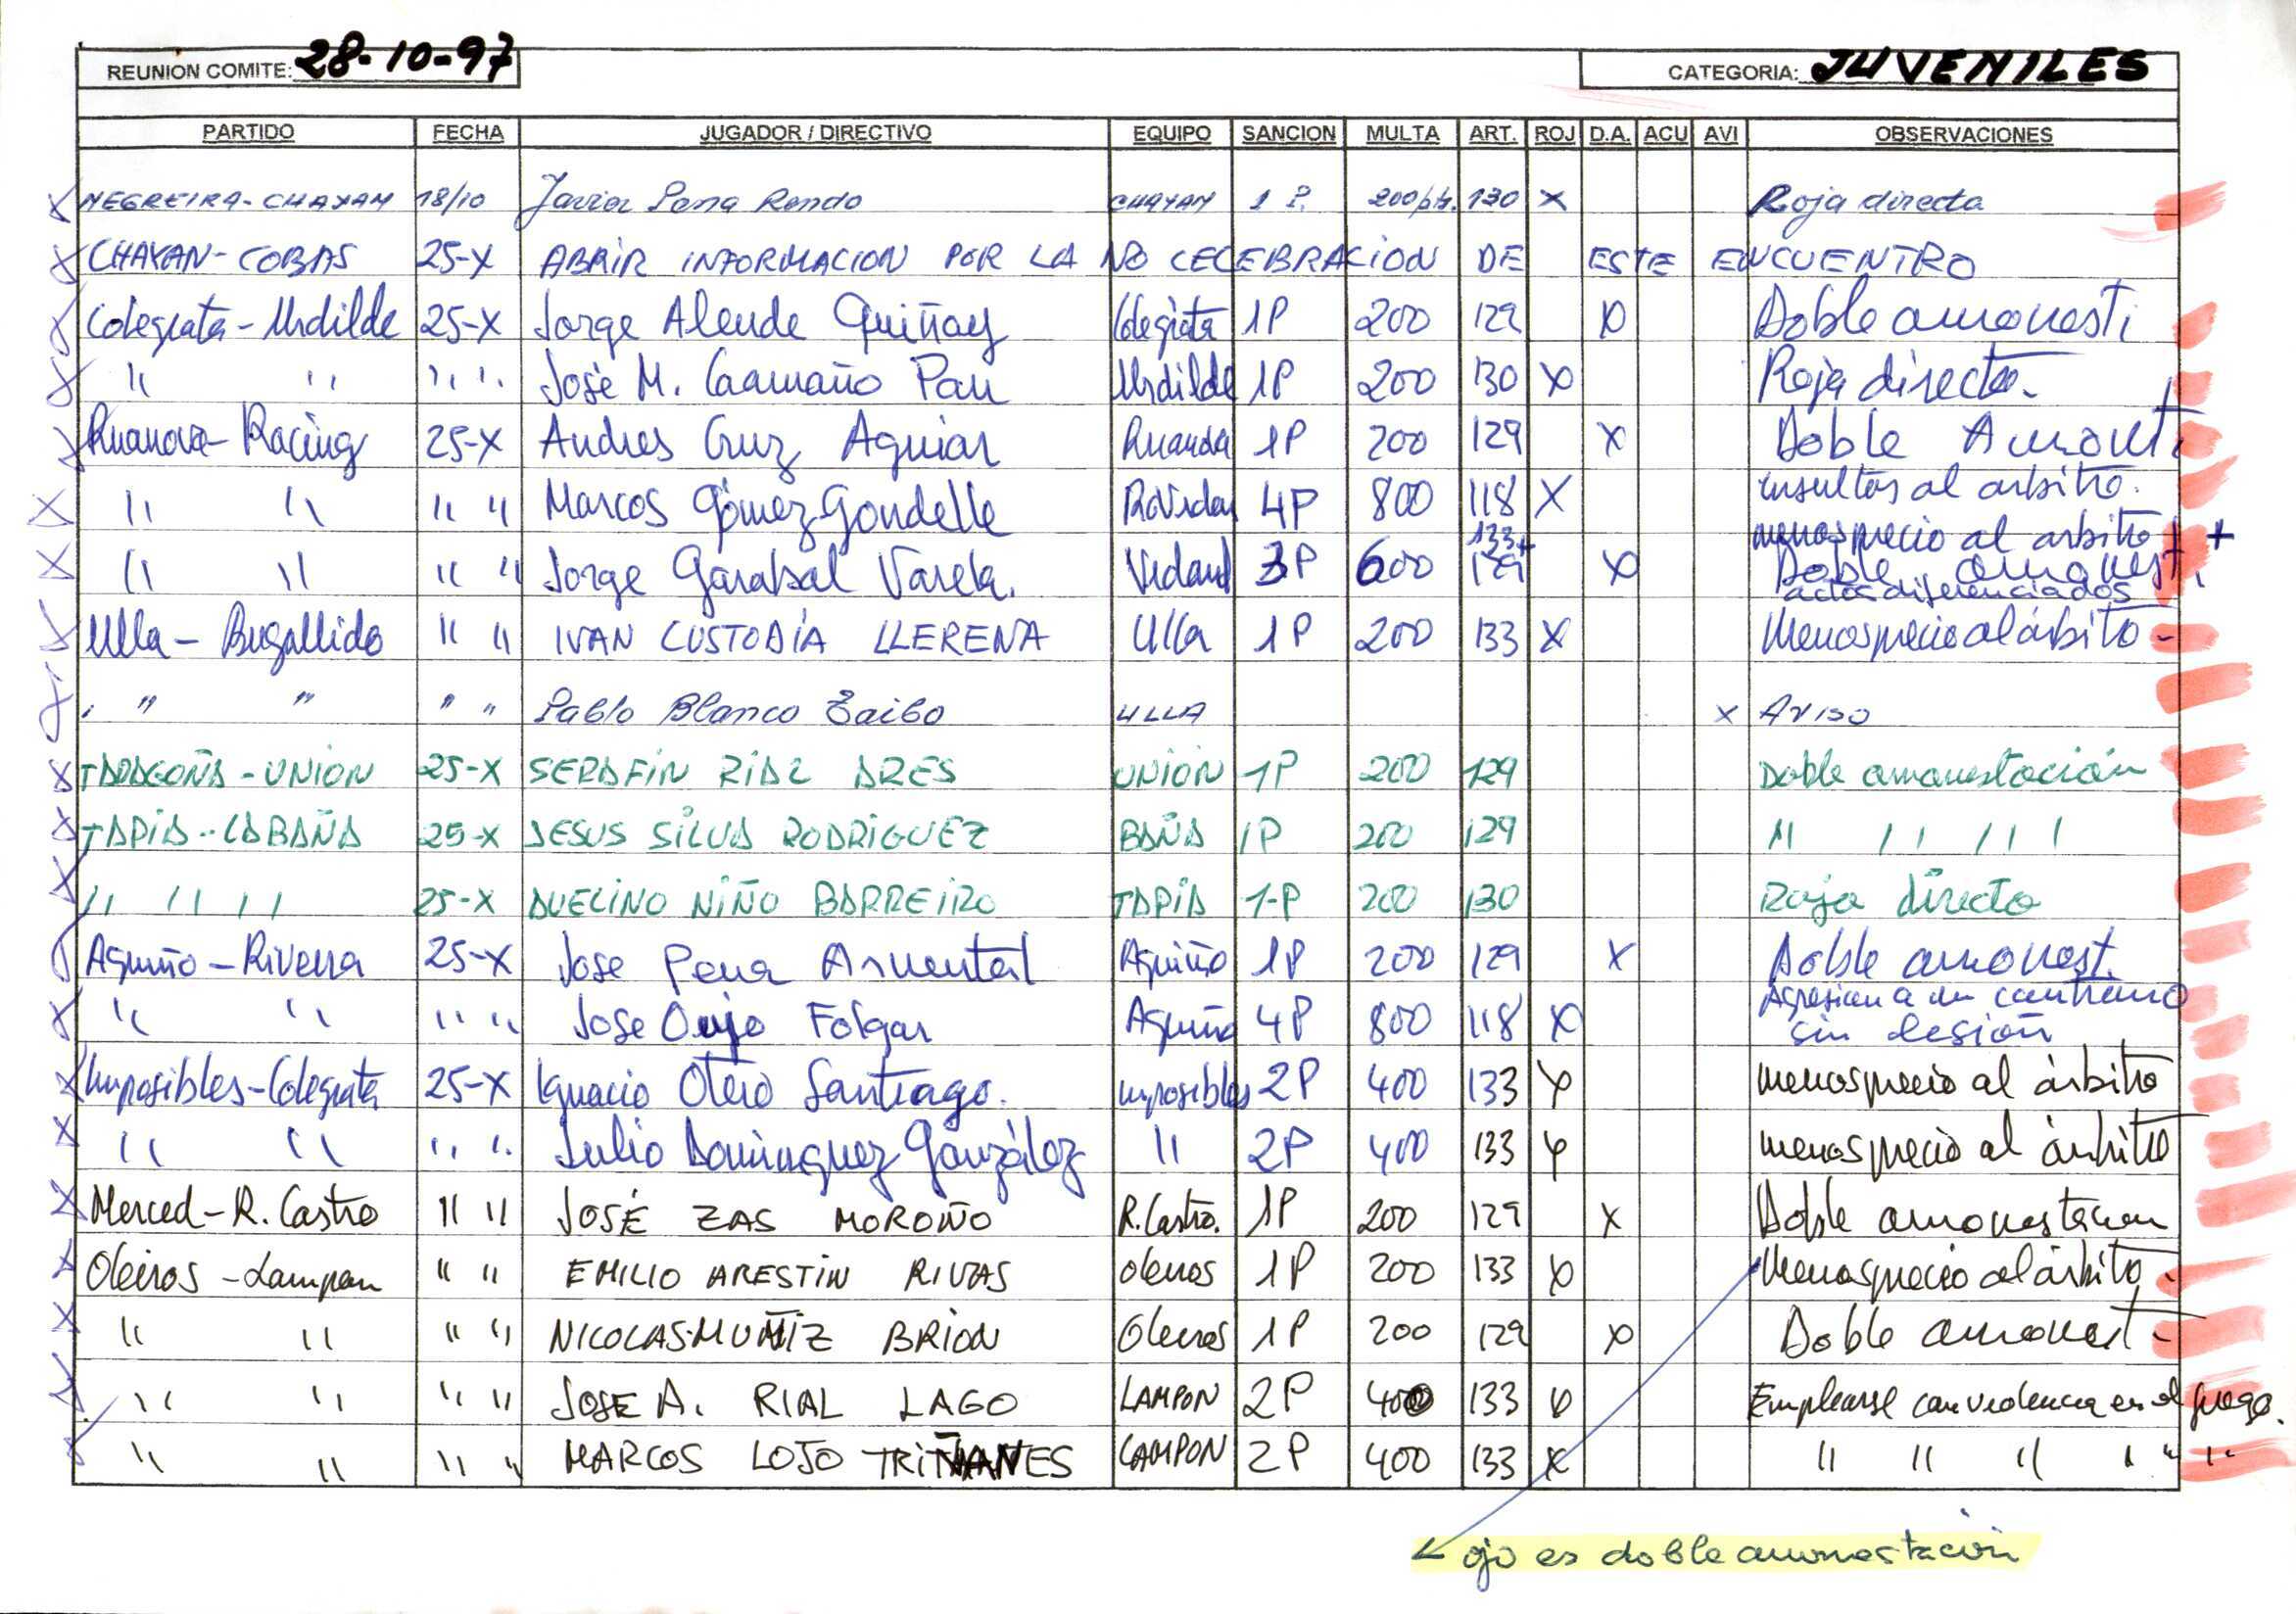 REUNION COMITE: 28-10-97 CATEGORIA: JUVENILES
PARTIDO FECHA JUGADOR / DIRECTIVO EQUIPO SANCION MULTA ART. ROJ D.A. ACU AVI OBSERVACIONES
X NEGREIRA-CHAYAN 18/10 Javier Pena Rendo CHAYAN 1 P. 200 pts. 130 X Roja directa
X CHAYAN-COBAS 25-X ABRIR INFORMACION POR LA NO CELEBRACION DE ESTE ENCUENTRO
X Colegiata-Urdilde 25-X Jorge Alende Colegiata 1P 200 129 X Doble amonesti
X " " " " José M. Caamaño Pan Urdilde 1P 200 130 X Roja directa.
X Ruanova-Racing 25-X Andres Cruz Aguiar 1P 200 129 X Doble Amonti
X " " " " Marcos Gómez Gondelle 4P 800 118 X insultos al arbitro.
X " " " " Jorge Garabal Varela. 3P 600 133+ 129 X menosprecio al arbitro + + Doble amonest. actos diferenciados
X Ulla-Bugallido " " IVAN CUSTODIA LLERENA Ulla 1P 200 133 X Menosprecio al árbitro-
X " " " " Pablo Blanco Taibo ULLA X Aviso
X TARAGOÑA-UNION 25-X SERAFIN RIAL ARES UNION 1P 200 129 Doble amonestación
X TAPIA-LABAÑA 25-X JESUS SILVA RODRIGUEZ BAÑA 1P 200 129 " " " "
X " " " " 25-X AVELINO NIÑO BARREIRO TAPIA 1-P 200 130 Roja directa
X Aguiño-Riveira 25-X Jose Pena Armental Aguiño 1P 200 129 X Doble amonest.
X " " " " Jose Folgar Aguiño 4P 800 118 X Agresion a un contrario sin lesión
X Imposibles-Colegiata 25-X Ignacio Otero Santiago. imposibles 2P 400 133 X menosprecio al árbitro
X " " " " Julio Dominguez González " 2P 400 133 X menosprecio al árbitro
X Merced-R. Castro " " JOSÉ ZAS MOROÑO R. Castro. 1P 200 129 X Doble amonestacion
X Oleiros-Lampon " " EMILIO ARESTIN RIVAS Oleiros 1P 200 133 X Menosprecio al árbitro-
X " " " " NICOLAS MUÑIZ BRION Oleiros 1P 200 129 X Doble amonest-
X " " " " JOSE A. RIAL LAGO LAMPON 2P 400 133 X Emplearse con violencia en el juego.
X " " " " MARCOS LOJO TRIÑANES LAMPON 2P 400 133 X " " " " " "
ojo es doble amonestación